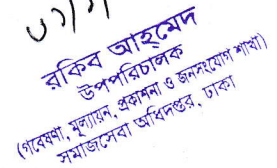 রকিব আহমেদ
উপপরিচালক
(গবেষণা, মূল্যায়ন, প্রকাশনা ও জনসংযোগ শাখা)
সমাজসেবা অধিদপ্তর, ঢাকা